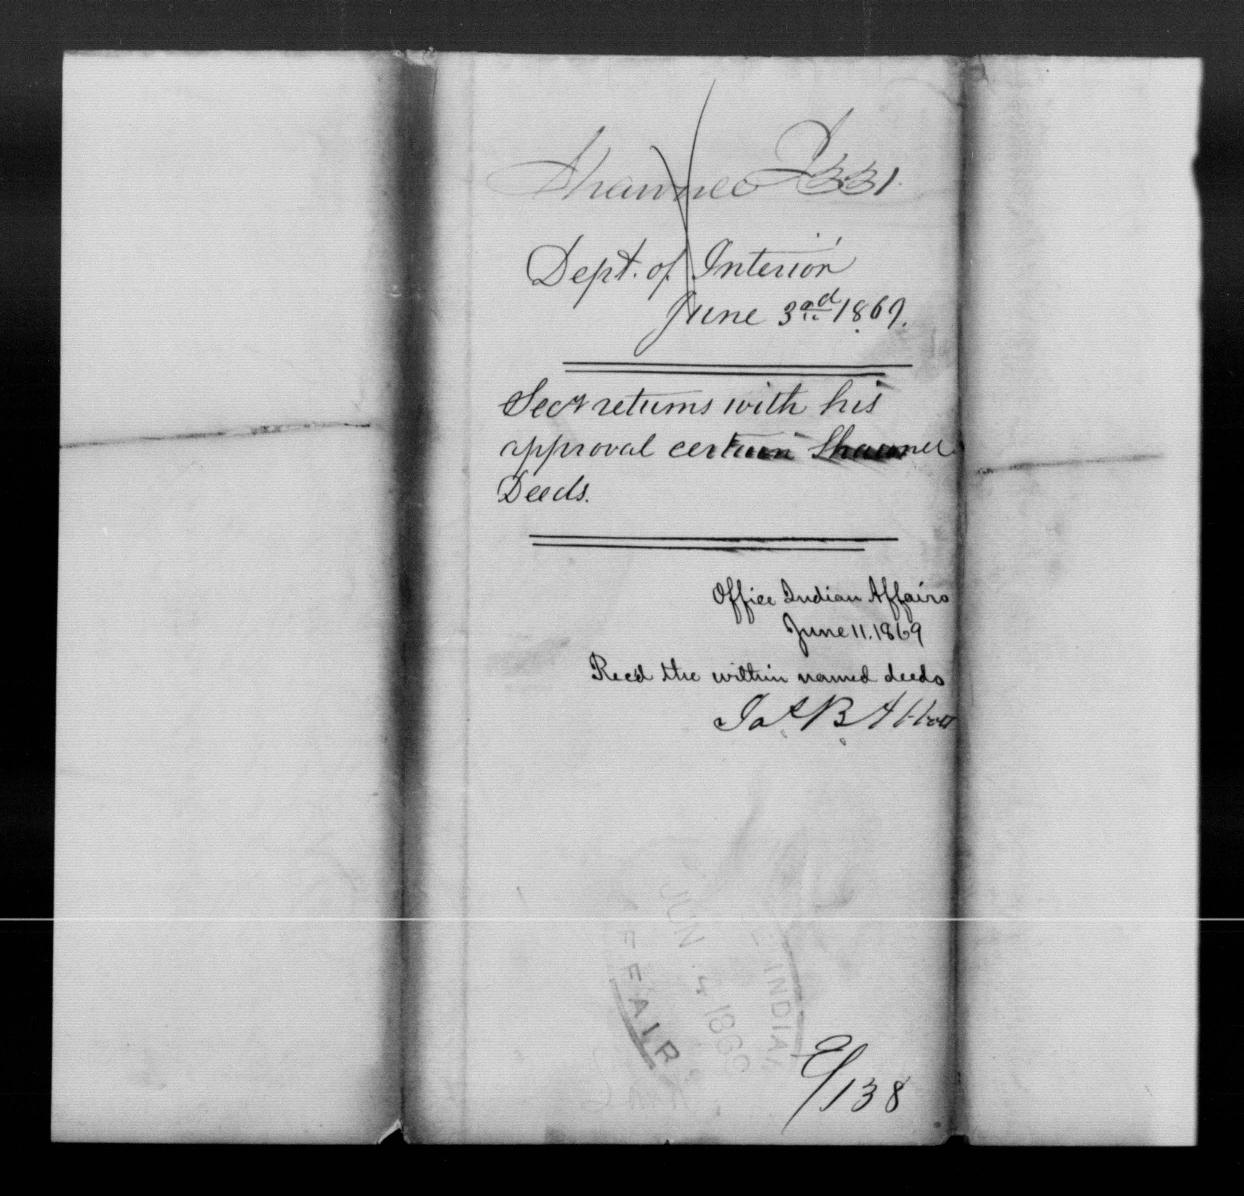 Shawnee I 331.
Dept. of Interior
June 3rd 1869.
Secy returns with his
approval certain Shawnee
Deeds.
Office Indian Affairs
June 11. 1869
Recd the within named deeds
Jas B Abbott
INDIAN
JUN 4 1869
AFFAIRS
9/138